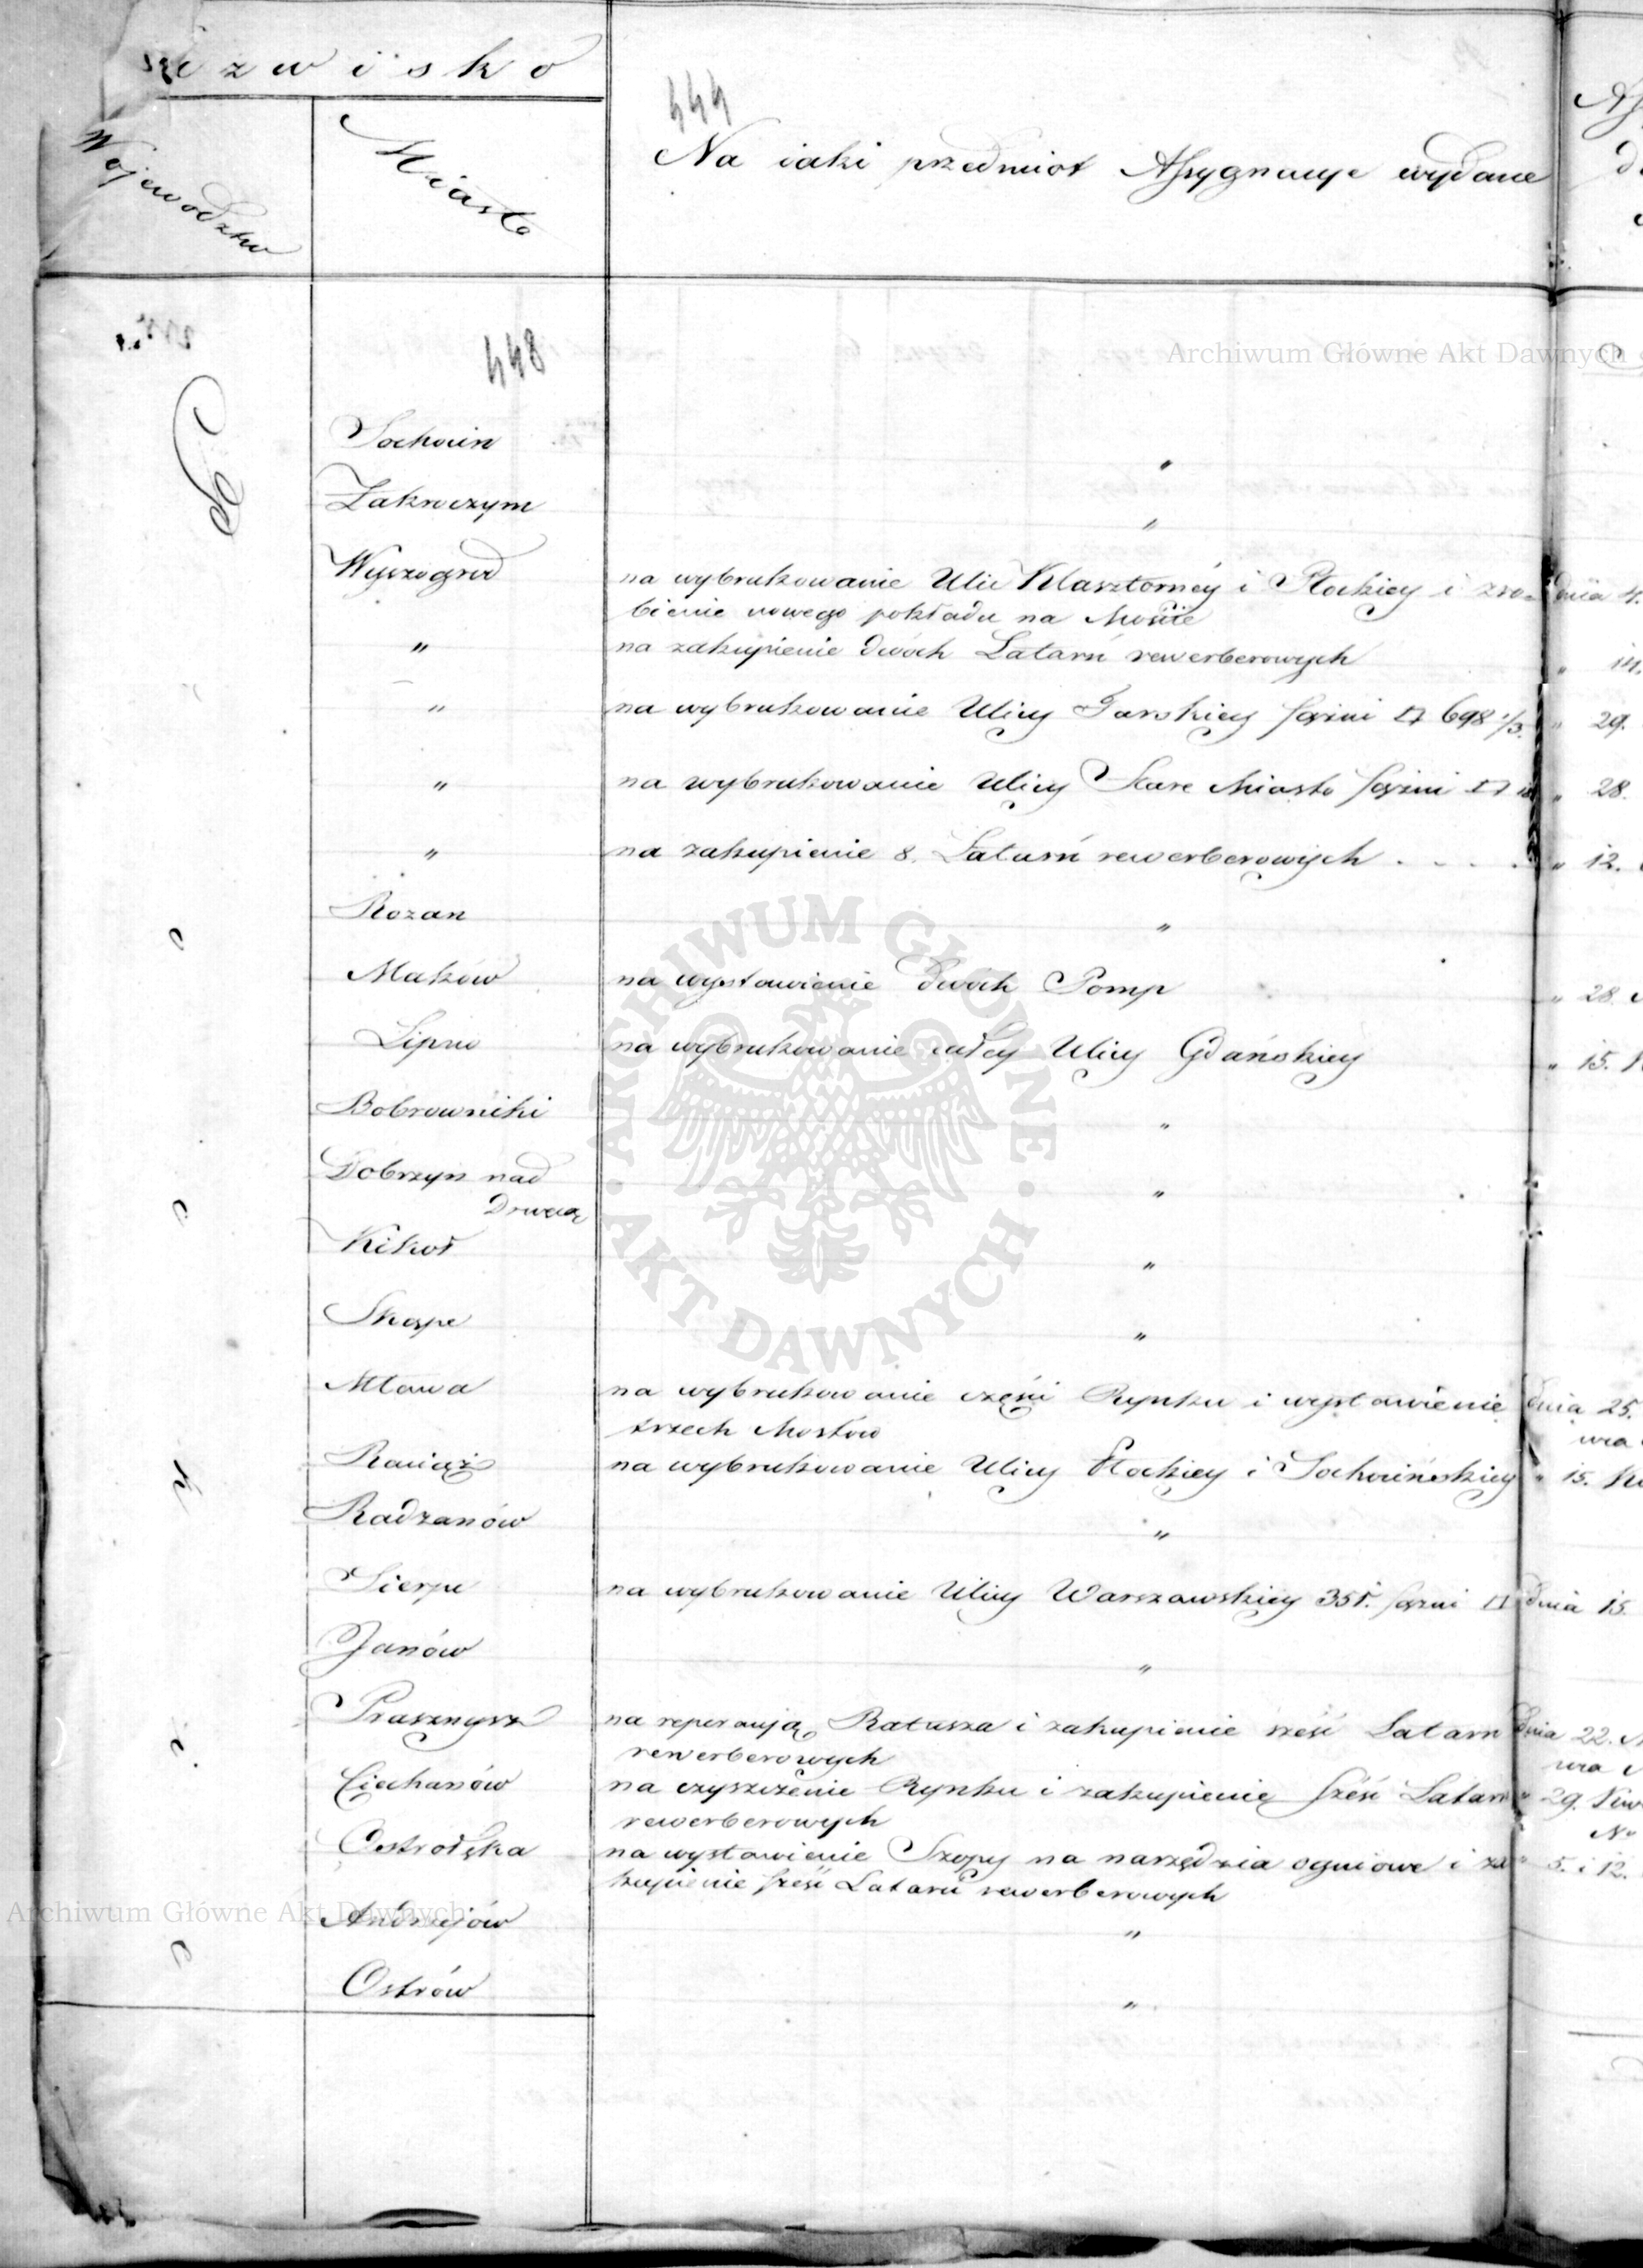 Nazwisko
444
Województwa
Miasta
Na iaki przedmiot Assygnacye wydane
448
Archiwum Główne Akt Dawnych
Sochocin "
Zakroczym "
Wyszogrod na wybrukowanie Ulic Klasztorney i Płockiey i zro= dnia 4.
bienie nowego pokładu na Moście
" na zakupienie dwóch Latarń rewerberowych "
" na wybrukowanie Ulicy Garskiey sążni □ 698 1/3. " 29.
" na wybrukowanie Ulicy Stare Miasto sążni □ " 28.
" na zakupienie 8. Latarń rewerberowych . . . . " 12.
Rozan "
Maków na wystawienie dwóch Pomp " 28.
Lipno na wybrukowanie całey Ulicy Gdańskiey " 15.
Bobrowniki "
Dobrzyn nad
Drwęcą "
Kikoł "
Skąpe "
Mława na wybrukowanie części Rynku i wystawienie dnia 25.
trzech Mostów
Raciąż na wybrukowanie Ulicy Płockiey i Sochocińskiey " 15.
Radzanów "
Sierpc na wybrukowanie Ulicy Warszawskiey 351. sążni □ dnia 15.
Janów "
Prasznysz na reperacyją Ratusza i zakupienie sześć Latarn dnia 22.
rewerberowych
Ciechanów na czyszczenie Rynku i zakupienie sześć Latarn " 29.
rewerberowych
Ostrołęka na wystawienie Szopy na narzędzia ogniowe i za " 5. i 12.
kupienie sześć Latarń rewerberowych
Archiwum Główne Akt Dawnych
Andrzejów "
Ostrów "
ARCHIWUM GŁÓWNE
AKT DAWNYCH